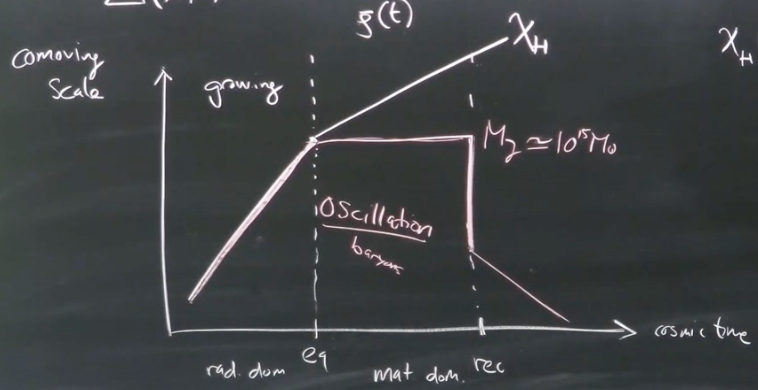 ξ(t)
χ_H
χ_H
comoving
scale
growing
M_J ≃ 10¹⁵M₀
Oscillation
baryons
cosmic time
rad. dom
eq
mat dom.
rec